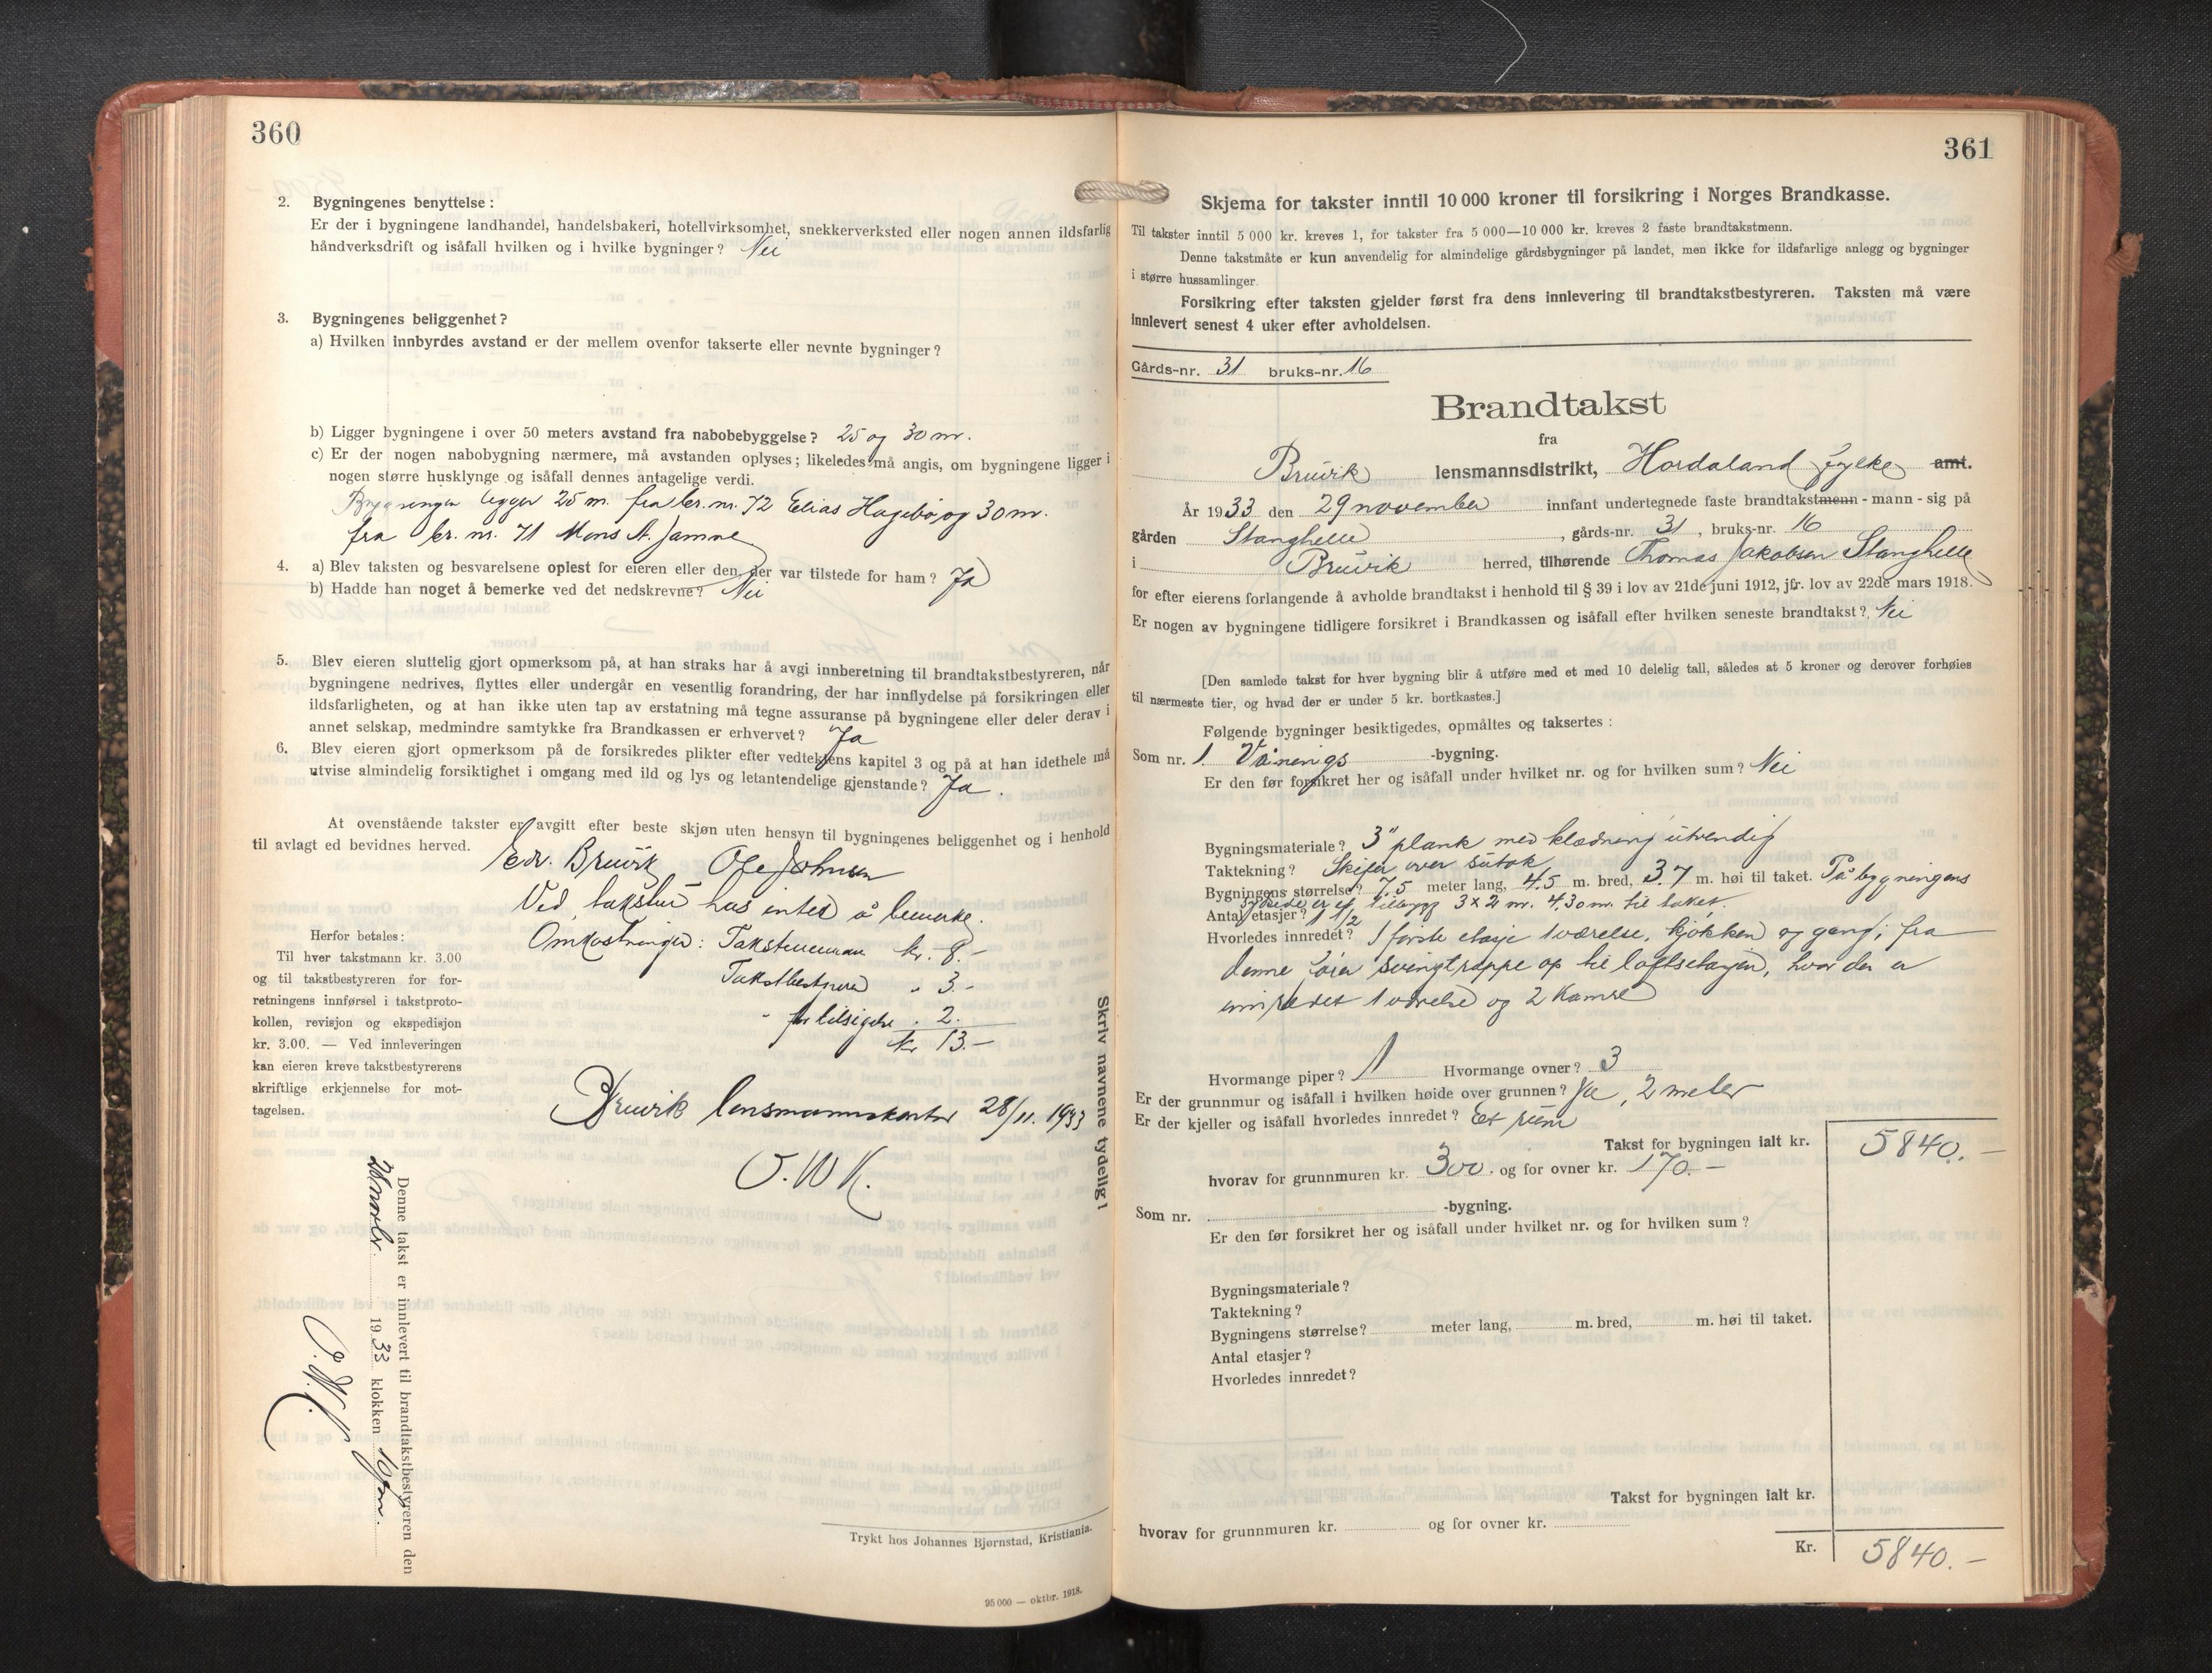 360
2. Bygningenes benyttelse:
Er der i bygningene landhandel, handelsbakeri, hotellvirksomhet, snekkerverksted eller nogen annen ildsfarlig
håndverksdrift og isåfall hvilken og i hvilke bygninger? Nei
3. Bygningenes beliggenhet?
a) Hvilken innbyrdes avstand er der mellem ovenfor takserte eller nevnte bygninger?
b) Ligger bygningene i over 50 meters avstand fra nabobebyggelse? 25 og 30 m.
c) Er der nogen nabobygning nærmere, må avstanden oplyses; likeledes må angis, om bygningene ligger i
nogen større husklynge og isåfall dennes antagelige verdi.
Bygningen ligger 25 m. fra br. nr. 72 Elias Hagebø og 30 m.
fra br. nr. 71 Mons A. Jamne
4. a) Blev taksten og besvarelsene oplest for eieren eller den, der var tilstede for ham? Ja
b) Hadde han noget å bemerke ved det nedskrevne? Nei
5. Blev eieren sluttelig gjort opmerksom på, at han straks har å avgi innberetning til brandtakstbestyreren, når
bygningene nedrives, flyttes eller undergår en vesentlig forandring, der har innflydelse på forsikringen eller
ildsfarligheten, og at han ikke uten tap av erstatning må tegne assuranse på bygningene eller deler derav i
annet selskap, medmindre samtykke fra Brandkassen er erhvervet? Ja
6. Blev eieren gjort opmerksom på de forsikredes plikter efter vedtektens kapitel 3 og på at han idethele må
utvise almindelig forsiktighet i omgang med ild og lys og letantendelige gjenstande? Ja.
At ovenstående takster er avgitt efter beste skjøn uten hensyn til bygningenes beliggenhet og i henhold
til avlagt ed bevidnes herved.
Edv. Bruvik Ole Johnsen
Ved taksten has intet å bemerke.
Omkostninger: Takstmennene kr. 8.-
Takstbestyreren " 3.-
" for tilsigelse " 2.
kr 13.-
Bruvik lensmannskontor 28/11. 1933
O. W K.
Herfor betales:
Til hver takstmann kr. 3.00
og til takstbestyreren for for-
retningens innførsel i takstproto-
kollen, revisjon og ekspedisjon
kr. 3.00. — Ved innleveringen
kan eieren kreve takstbestyrerens
skriftlige erkjennelse for mot-
tagelsen.
Skriv navnene tydelig!
Denne takst er innlevert til brandtakstbestyreren den
28 novbr. 1933 klokken 10 fm.
O. W. K.
Trykt hos Johannes Bjørnstad, Kristiania.
95 000 — oktbr. 1918.
361
Skjema for takster inntil 10 000 kroner til forsikring i Norges Brandkasse.
Til takster inntil 5 000 kr. kreves 1, for takster fra 5 000—10 000 kr. kreves 2 faste brandtakstmenn.
Denne takstmåte er kun anvendelig for almindelige gårdsbygninger på landet, men ikke for ildsfarlige anlegg og bygninger
i større hussamlinger.
Forsikring efter taksten gjelder først fra dens innlevering til brandtakstbestyreren. Taksten må være
innlevert senest 4 uker efter avholdelsen.
Gårds-nr. 31 bruks-nr. 16
Brandtakst
fra
Bruvik lensmannsdistrikt, Hordaland fylke amt.
År 1933 den 29 november innfant undertegnede faste brandtakstmenn - mann - sig på
gården Stanghelle, gårds-nr. 31, bruks-nr. 16
i Bruvik herred, tilhørende Thomas Jakobsen Stanghelle
for efter eierens forlangende å avholde brandtakst i henhold til § 39 i lov av 21de juni 1912, jfr. lov av 22de mars 1918.
Er nogen av bygningene tidligere forsikret i Brandkassen og isåfall efter hvilken seneste brandtakst? Nei
[Den samlede takst for hver bygning blir å utføre med et med 10 delelig tall, således at 5 kroner og derover forhøies
til nærmeste tier, og hvad der er under 5 kr. bortkastes.]
Følgende bygninger besiktigedes, opmåltes og taksertes:
Som nr. 1. Vånings -bygning.
Er den før forsikret her og isåfall under hvilket nr. og for hvilken sum? Nei
Bygningsmateriale? 3" plank med klædning utvendig
Taktekning? Skifer over sutak
Bygningens størrelse? 7.5 meter lang, 4.5 m. bred, 3.7 m. høi til taket. På bygningens
er et tilbygg 3 x 2 m. 4.30 m. til taket.
Antal etasjer? 1 1/2
Hvorledes innredet? I første etasje 1 værelse, kjøkken og gang; fra
denne fører svingtrappe op til loftsetasjen, hvor der er
innredet 1 værelse og 2 kamre
Hvormange piper? 1 Hvormange ovner? 3
Er der grunnmur og isåfall i hvilken høide over grunnen? Ja, 2 meter
Er der kjeller og isåfall hvorledes innredet? Et rum
Takst for bygningen ialt kr. 5840.—
hvorav for grunnmuren kr. 300. og for ovner kr. 170.—
Som nr. -bygning.
Er den før forsikret her og isåfall under hvilket nr. og for hvilken sum?
Bygningsmateriale?
Taktekning?
Bygningens størrelse? meter lang, m. bred, m. høi til taket.
Antal etasjer?
Hvorledes innredet?
Takst for bygningen ialt kr.
hvorav for grunnmuren kr. og for ovner kr.
Kr. 5840.—